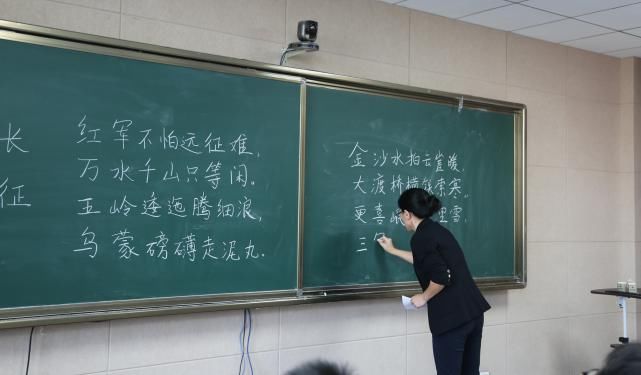 长征
红军不怕远征难,
万水千山只等闲。
五岭逶迤腾细浪,
乌蒙磅礴走泥丸.
金沙水拍云崖暖,
大渡桥横铁索寒。
更喜岷里雪,
三